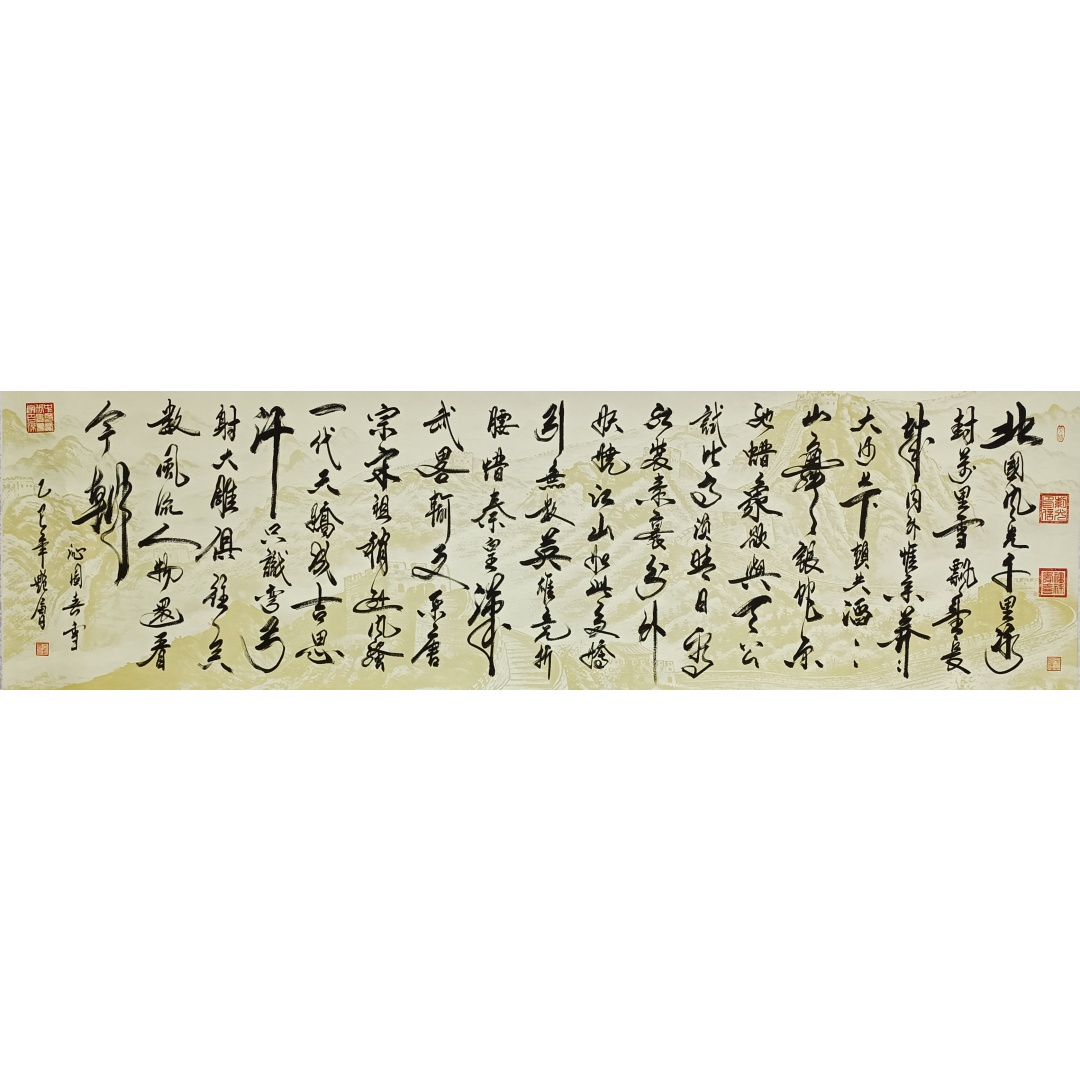 北國风光千里冰
封萬里雪飄望長
城内外惟余莽〻
大河上下頓失滔〻
山舞银蛇原
驰蜡象欲與天公
試比高须晴日看
红装素裹分外
妖娆江山如此多嬌
引無数英雄竞折
腰惜秦皇漢
武畧輸文采唐
宗宋祖稍逊风骚
一代天驕成吉思
汗只識彎弓
射大雕俱往矣
数風流人物還看
今朝
沁園春雪
乙巳年